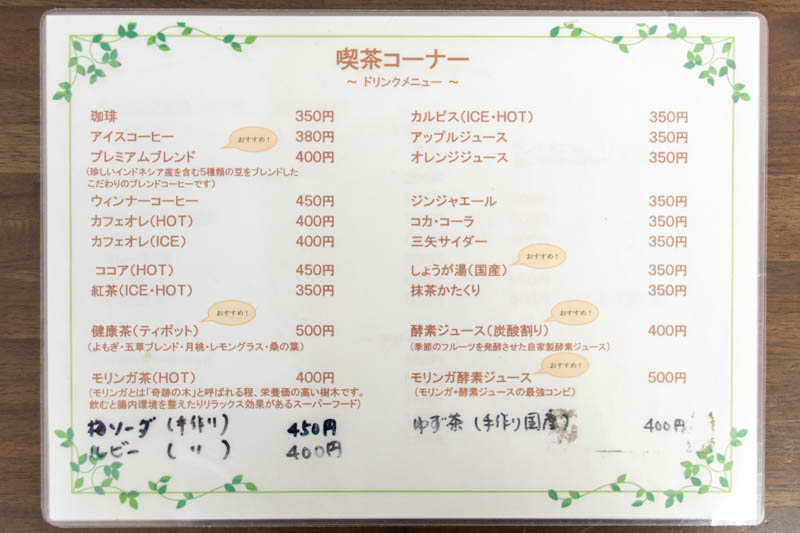 喫茶コーナー
～ ドリンクメニュー ～
珈琲 350円
アイスコーヒー 380円
おすすめ！
プレミアムブレンド 400円
(珍しいインドネシア産を含む5種類の豆をブレンドした
こだわりのブレンドコーヒーです)
ウィンナーコーヒー 450円
カフェオレ(HOT) 400円
カフェオレ(ICE) 400円
ココア(HOT) 450円
紅茶(ICE・HOT) 350円
おすすめ！
健康茶(ティポット) 500円
(よもぎ・五草ブレンド・月桃・レモングラス・桑の葉)
モリンガ茶(HOT) 400円
(モリンガとは「奇跡の木」と呼ばれる程、栄養価の高い樹木です。
飲むと腸内環境を整えたりリラックス効果があるスーパーフード)
梅ソーダ (手作り) 450円
ルビー ( 〃 ) 400円
カルピス(ICE・HOT) 350円
アップルジュース 350円
オレンジジュース 350円
ジンジャエール 350円
コカ・コーラ 350円
三矢サイダー 350円
おすすめ！
しょうが湯(国産) 350円
抹茶かたくり 350円
おすすめ！
酵素ジュース(炭酸割り) 400円
(季節のフルーツを発酵させた自家製酵素ジュース)
おすすめ！
モリンガ酵素ジュース 500円
(モリンガ+酵素ジュースの最強コンビ)
ゆず茶 (手作り国産) 400円